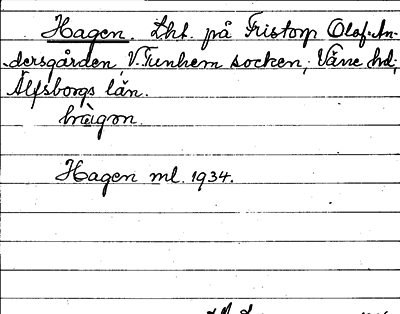 Hagen. Lht. på Fristorp Olof-An-
dersgården, V. Tunhem socken, Väne hd,
Älfsborgs län.
hàgon.
Hagen ml. 1934.